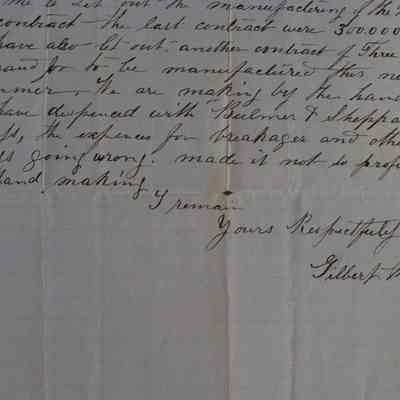 me to let out the manufacturing of the
contract the last contract were 300.000
have also let out another contract of Three
and for to be manufactured this
We are making by the hand
have despenced with Bulmer & Sheppa
the expences for breakages and othe
going wrong. made it not so prof
hand making
I remain
Yours Respectfully
Gilbert